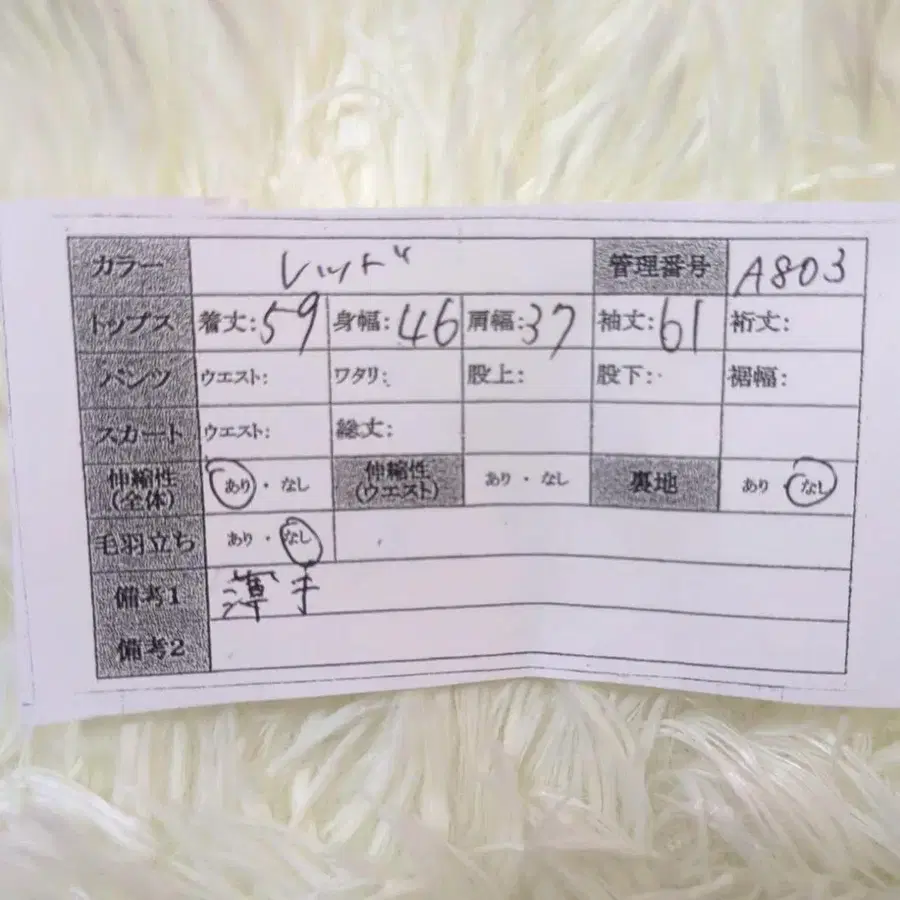 カラー レッド 管理番号 A803
トップス 着丈:59 身幅:46 肩幅:37 袖丈:61 裄丈:
パンツ ウエスト: ワタリ: 股上: 股下: 裾幅:
スカート ウエスト: 総丈:
伸縮性(全体) あり・なし 伸縮性(ウエスト) あり・なし 裏地 あり・なし
毛羽立ち あり・なし
備考1 薄手
備考2